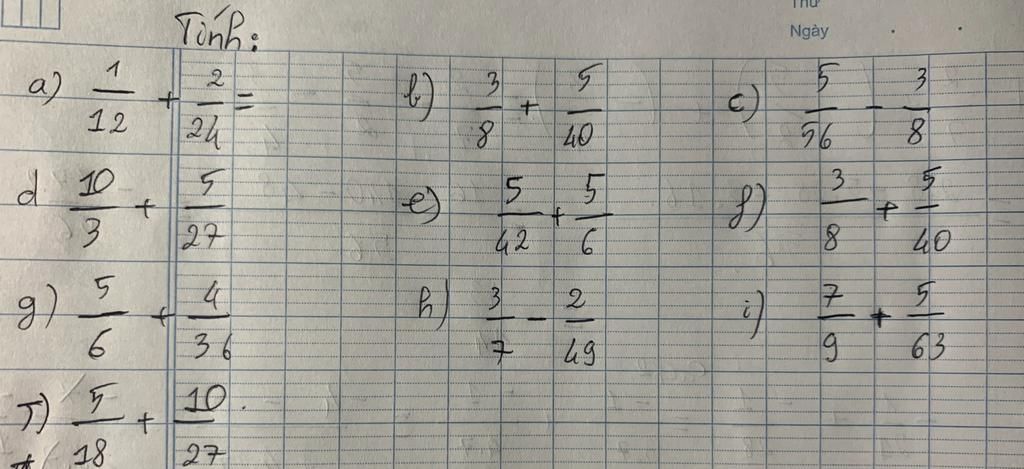 Thứ
Ngày
Tính:
a) 1/12 + 2/24 =
b) 3/8 + 5/40
c) 5/56 - 3/8
d 10/3 + 5/27
e) 5/42 + 5/6
f) 3/8 + 5/40
g) 5/6 + 4/36
h) 3/7 - 2/49
i) 7/9 + 5/63
J) 5/18 + 10/27